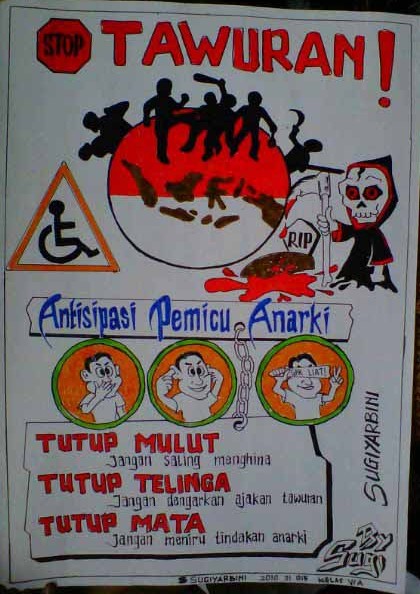 STOP TAWURAN!
RIP
Antisipasi Pemicu Anarki
GAK LIAT!
TUTUP MULUT
Jangan saling menghina
TUTUP TELINGA
Jangan dengarkan ajakan tawuran
TUTUP MATA
Jangan meniru tindakan anarki
SUGIYARBINI
By
Sugi
SUGIYARBINI 2010 31 018 KELAS VI A